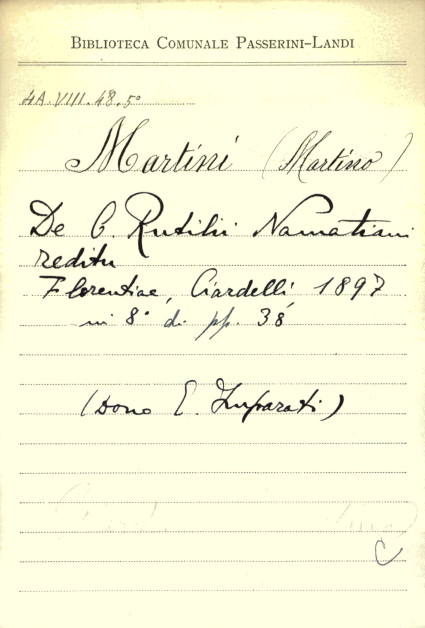 BIBLIOTECA COMUNALE PASSERINI-LANDI
4A.VIII.48.5°
Martini (Martino)
De C. Rutilii Namatiani
reditu
Florentiae, Ciardelli, 1897
in 8° di pp. 38
(Dono E. Imparati)
C